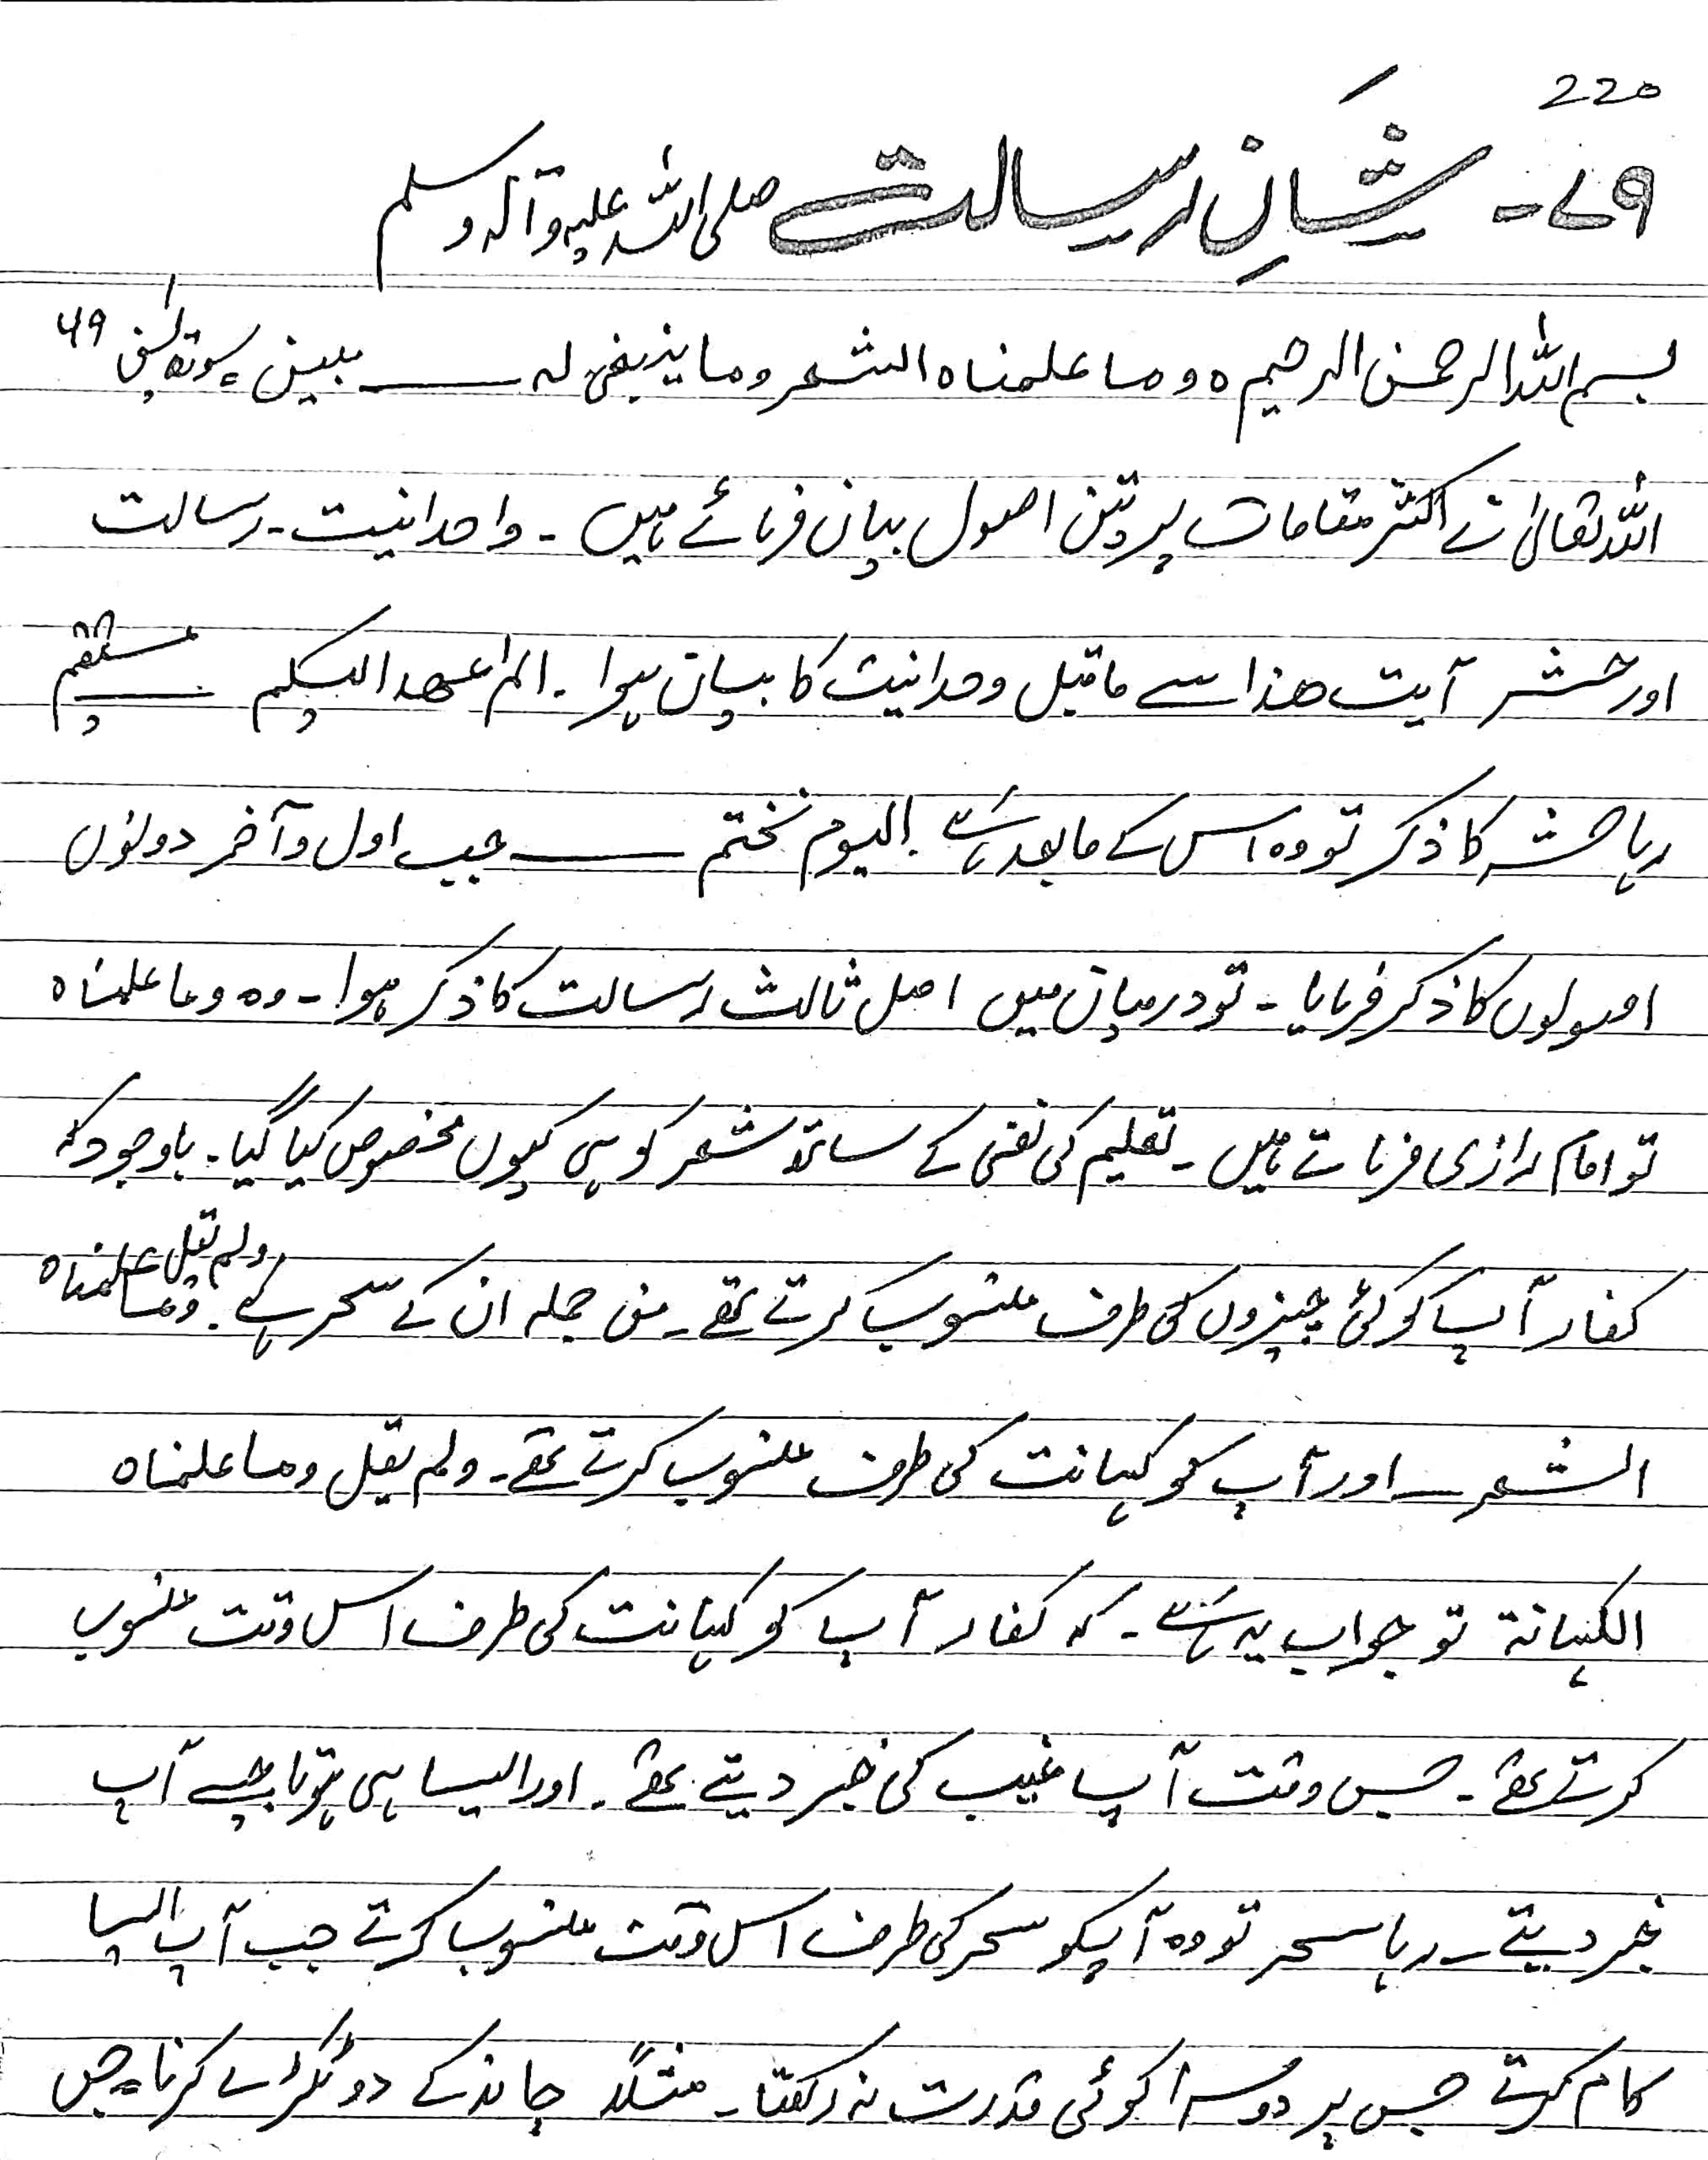 220
۷۹۔ شانِ رسالت صلی اللہ علیہ وآلہ وسلم
بسم اللہ الرحمن الرحیم ہ وما علمناہ الشعر وما ینبغی لہ ــــــ مبین ۔ سورۃ یٰسٓ ۶۹
اللہ تعالیٰ نے اکثر مقامات پر تین اصول بیان فرمائے ہیں ۔ واحدانیت ۔ رسالت
اور حشر آیت ھذا سے ماقبل وحدانیت کا بیان ہوا ۔ الم اعھد الیکم ــــــ مستقیم
رہا حشر کا ذکر تو وہ اس کے مابعد ہے ۔ الیوم نختم ــــــ جب اول وآخر دونوں
اصولوں کا ذکر فرمایا ۔ تو درمیان میں اصل ثالث رسالت کا ذکر ہوا ۔ وہ وما علمناہ
تو امام رازی فرماتے ہیں ۔ تعلیم کی نفی کے ساتھ شعر کو ہی کیوں مخصوص کیا گیا ۔ باوجودکہ
کفار آپ کو کئی چیزوں کی طرف منسوب کرتے تھے ۔ من جملہ ان کے سحر ہے ۔ ولم یقل وما علمناہ
الشعر ــ اور آپ کو کہانت کی طرف منسوب کرتے تھے ۔ ولم یقل وما علمناہ
الکہانۃ تو جواب یہ ہے ۔ کہ کفار آپ کو کہانت کی طرف اس وقت منسوب
کرتے تھے ۔ جس وقت آپ غیب کی خبر دیتے تھے ۔ اور ایسا ہی ہوتا جیسے آپ
خبر دیتے ــ رہا سحر تو وہ آپکو سحر کی طرف اس وقت منسوب کرتے جب آپ ایسا
کام کرتے جس پر دوسرا کوئی قدرت نہ رکھتا ۔ مثلاً چاند کے دو ٹکڑے کرنا ۔ جس